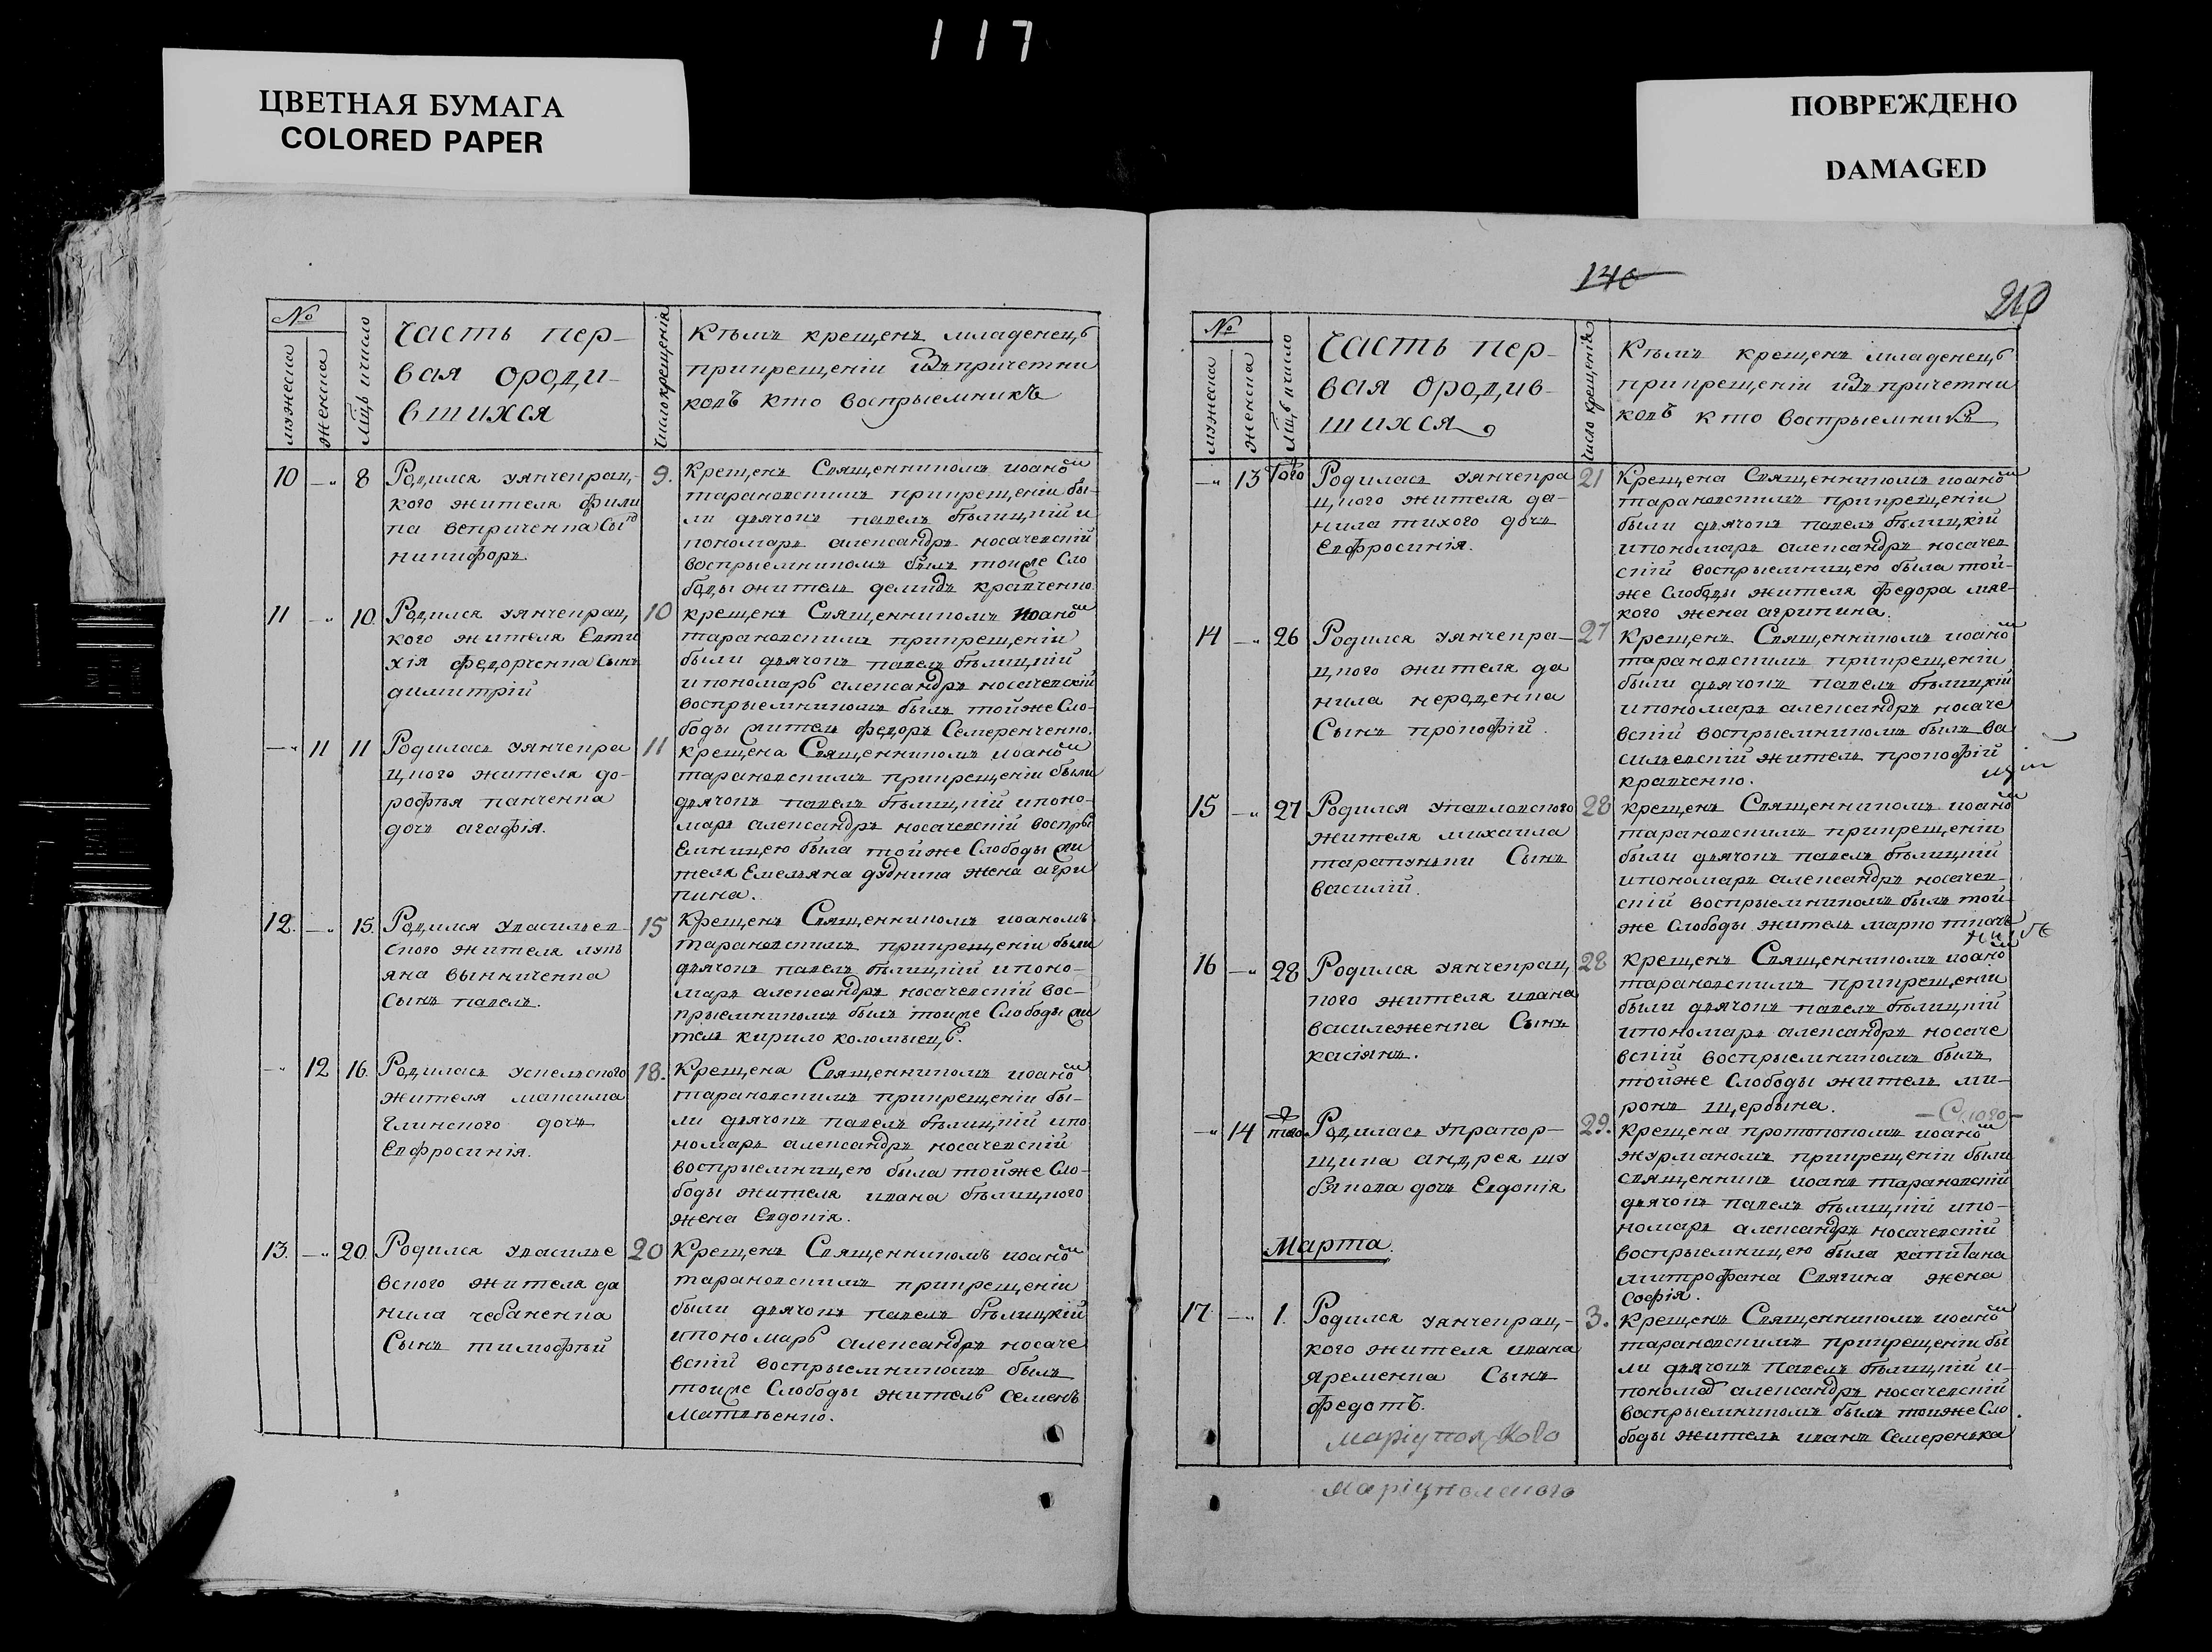 117
ЦВЕТНАЯ БУМАГА
COLORED PAPER
ПОВРЕЖДЕНО
DAMAGED
№
мужеска
женска
мцъ ичисло
Часть пер-
вая ороди-
вшихся
число крещенія
Кѣмъ крещенъ младенецъ
прикрещеніи изъпричетни
ковъ кто воспрыемникъ
10 —„ 8
Родился уянчекрац-
кого жителя фили
па
никифоръ
9.
Крещенъ Священникомъ иоаном
тарановскимъ прикрещеніи бы-
ли дьячокъ павелъ бѣлицкій и
пономаръ александръ носачевскій
воспрыемникомъ былъ тоиже Сло
боды жителъ демидъ кравченко.
11 —„ 10.
Родился уянчекрац
кого жителя Евти
хія федорченка Сынъ
димитрій
10
крещенъ Священникомъ иоаном
тарановскимъ прикрещеніи
были дьячокъ павелъ бѣлицкій
ипономарь александръ носачевскій
воспрыемникомъ былъ тойже Сло-
боды жителъ федоръ Семеренченко.
—„ 11 11
Родиласъ уянчекра
цкого жителя до-
рофѣя панченка
дочъ агафія.
11
крещена Священникомъ иоаном
тарановскимъ прикрещеніи были
дьячокъ павелъ бѣлицкій ипоно-
маръ александръ носачевскій воспры
Емницею была тойже Слободы жи
теля Емельяна дудника жена агри
пина.
12. —„ 15.
Родился увасильев-
ского жителя лукь
яна винниченка
Сынъ павелъ.
15
Крещенъ Священникомъ иоаномъ
тарановскимъ прикрещеніи были
дьячокъ павелъ бѣлицкій ипоно-
маръ александръ носачевскій вос-
прыемникомъ былъ тоиже Слободы жи
телъ кирило коломыецъ.
—„ 12 16.
Родиласъ успевского
жителя максима
глинского дочъ
Евфросинія.
18.
Крещена Священникомъ иоаном
тарановскимъ прикрещеніи бы-
ли дьячокъ павелъ бѣлицкій ипо
номаръ александръ носачевскій
восприемницею была тойже Сло-
боды жителя ивана бѣлицкого
жена Евдокія.
13. —„ 20.
Родился увасилье
вского жителя да
нила чебаненка
Сынъ тимофѣй
20
Крещенъ Священникомъ иоаном
тарановскимъ прикрещеніи
были дьячокъ павелъ бѣлицкій
ипономаръ александръ носаче
вскій воспрыемникомъ былъ
тоиже Слободы житель Семенъ
Матвѣенко.
140
210
№
мужеска
женска
мцъ ичисло
Часть пер-
вая ородив-
шихся
число крещенія
Кѣмъ крещенъ младенецъ
прикрещеніи изъпричетни
ковъ кто воспрыемникъ
—„ 13 Того
Родиласъ уянчекра
цкого жителя да-
нила тихого дочъ
Евфросинія.
21
Крещена Священникомъ иоаном
тарановскимъ прикрещеніи
были дьячокъ павелъ бѣлицкій
ипономаръ александръ носачев
скій воспрыемницею была той-
же Слободы жителя федора мяг-
кого жена агрипина.
14 —„ 26
Родился уянчекра-
цкого жителя да
нила нероденка
Сынъ прокофій.
27
Крещенъ Священникомъ иоаном
тарановскимъ прикрещеніи
были дьячокъ павелъ бѣлицкій
ипономаръ александръ носаче
вскій воспрыемникомъ былъ ва
сильевскій жителъ прокофій
кравченко.
15 —„ 27
Родился упавловского
жителя михаила
тарапуньки Сынъ
василій.
28
крещенъ Священникомъ иоаном
тарановскимъ прикрещеніи
были дьячокъ павелъ бѣлицкій
ипономаръ александръ носачев-
скій воспрыемникомъ былъ той-
же Слободы жителъ марко
16 —„ 28
Родился уянчекрац
кого жителя ивана
василеженка Сынъ
касіянъ.
28
крещенъ Священникомъ иоаном
тарановскимъ прикрещеніи
были дьячокъ павелъ бѣлицкій
ипономаръ александръ носаче
вскій воспрыемникомъ былъ
тойже Слободы жителъ ми-
ронъ щербына.
—„ 14 того
Родиласъ упрапор-
щика андрея шу
бякова дочъ Евдокія
29.
крещена протопопомъ иоаном
журманомъ прикрещеніи были
священникъ иоанъ тарановскій
дьячокъ павелъ бѣлицкій ипо-
номаръ александръ носачевскій
воспрыемницею была капитана
митрофана Савгина жена
Софія.
Марта.
17. —„ 1.
Родился уянчекрац-
кого жителя ивана
яременка Сынъ
федотъ.
3.
крещенъ Священникомъ иоаном
тарановскимъ прикрещеніи бы
ли дьячокъ павелъ бѣлицкій и-
пономар александръ носачевскій
воспрыемникомъ былъ тоиже Сло
боды жителъ иванъ Семеренька